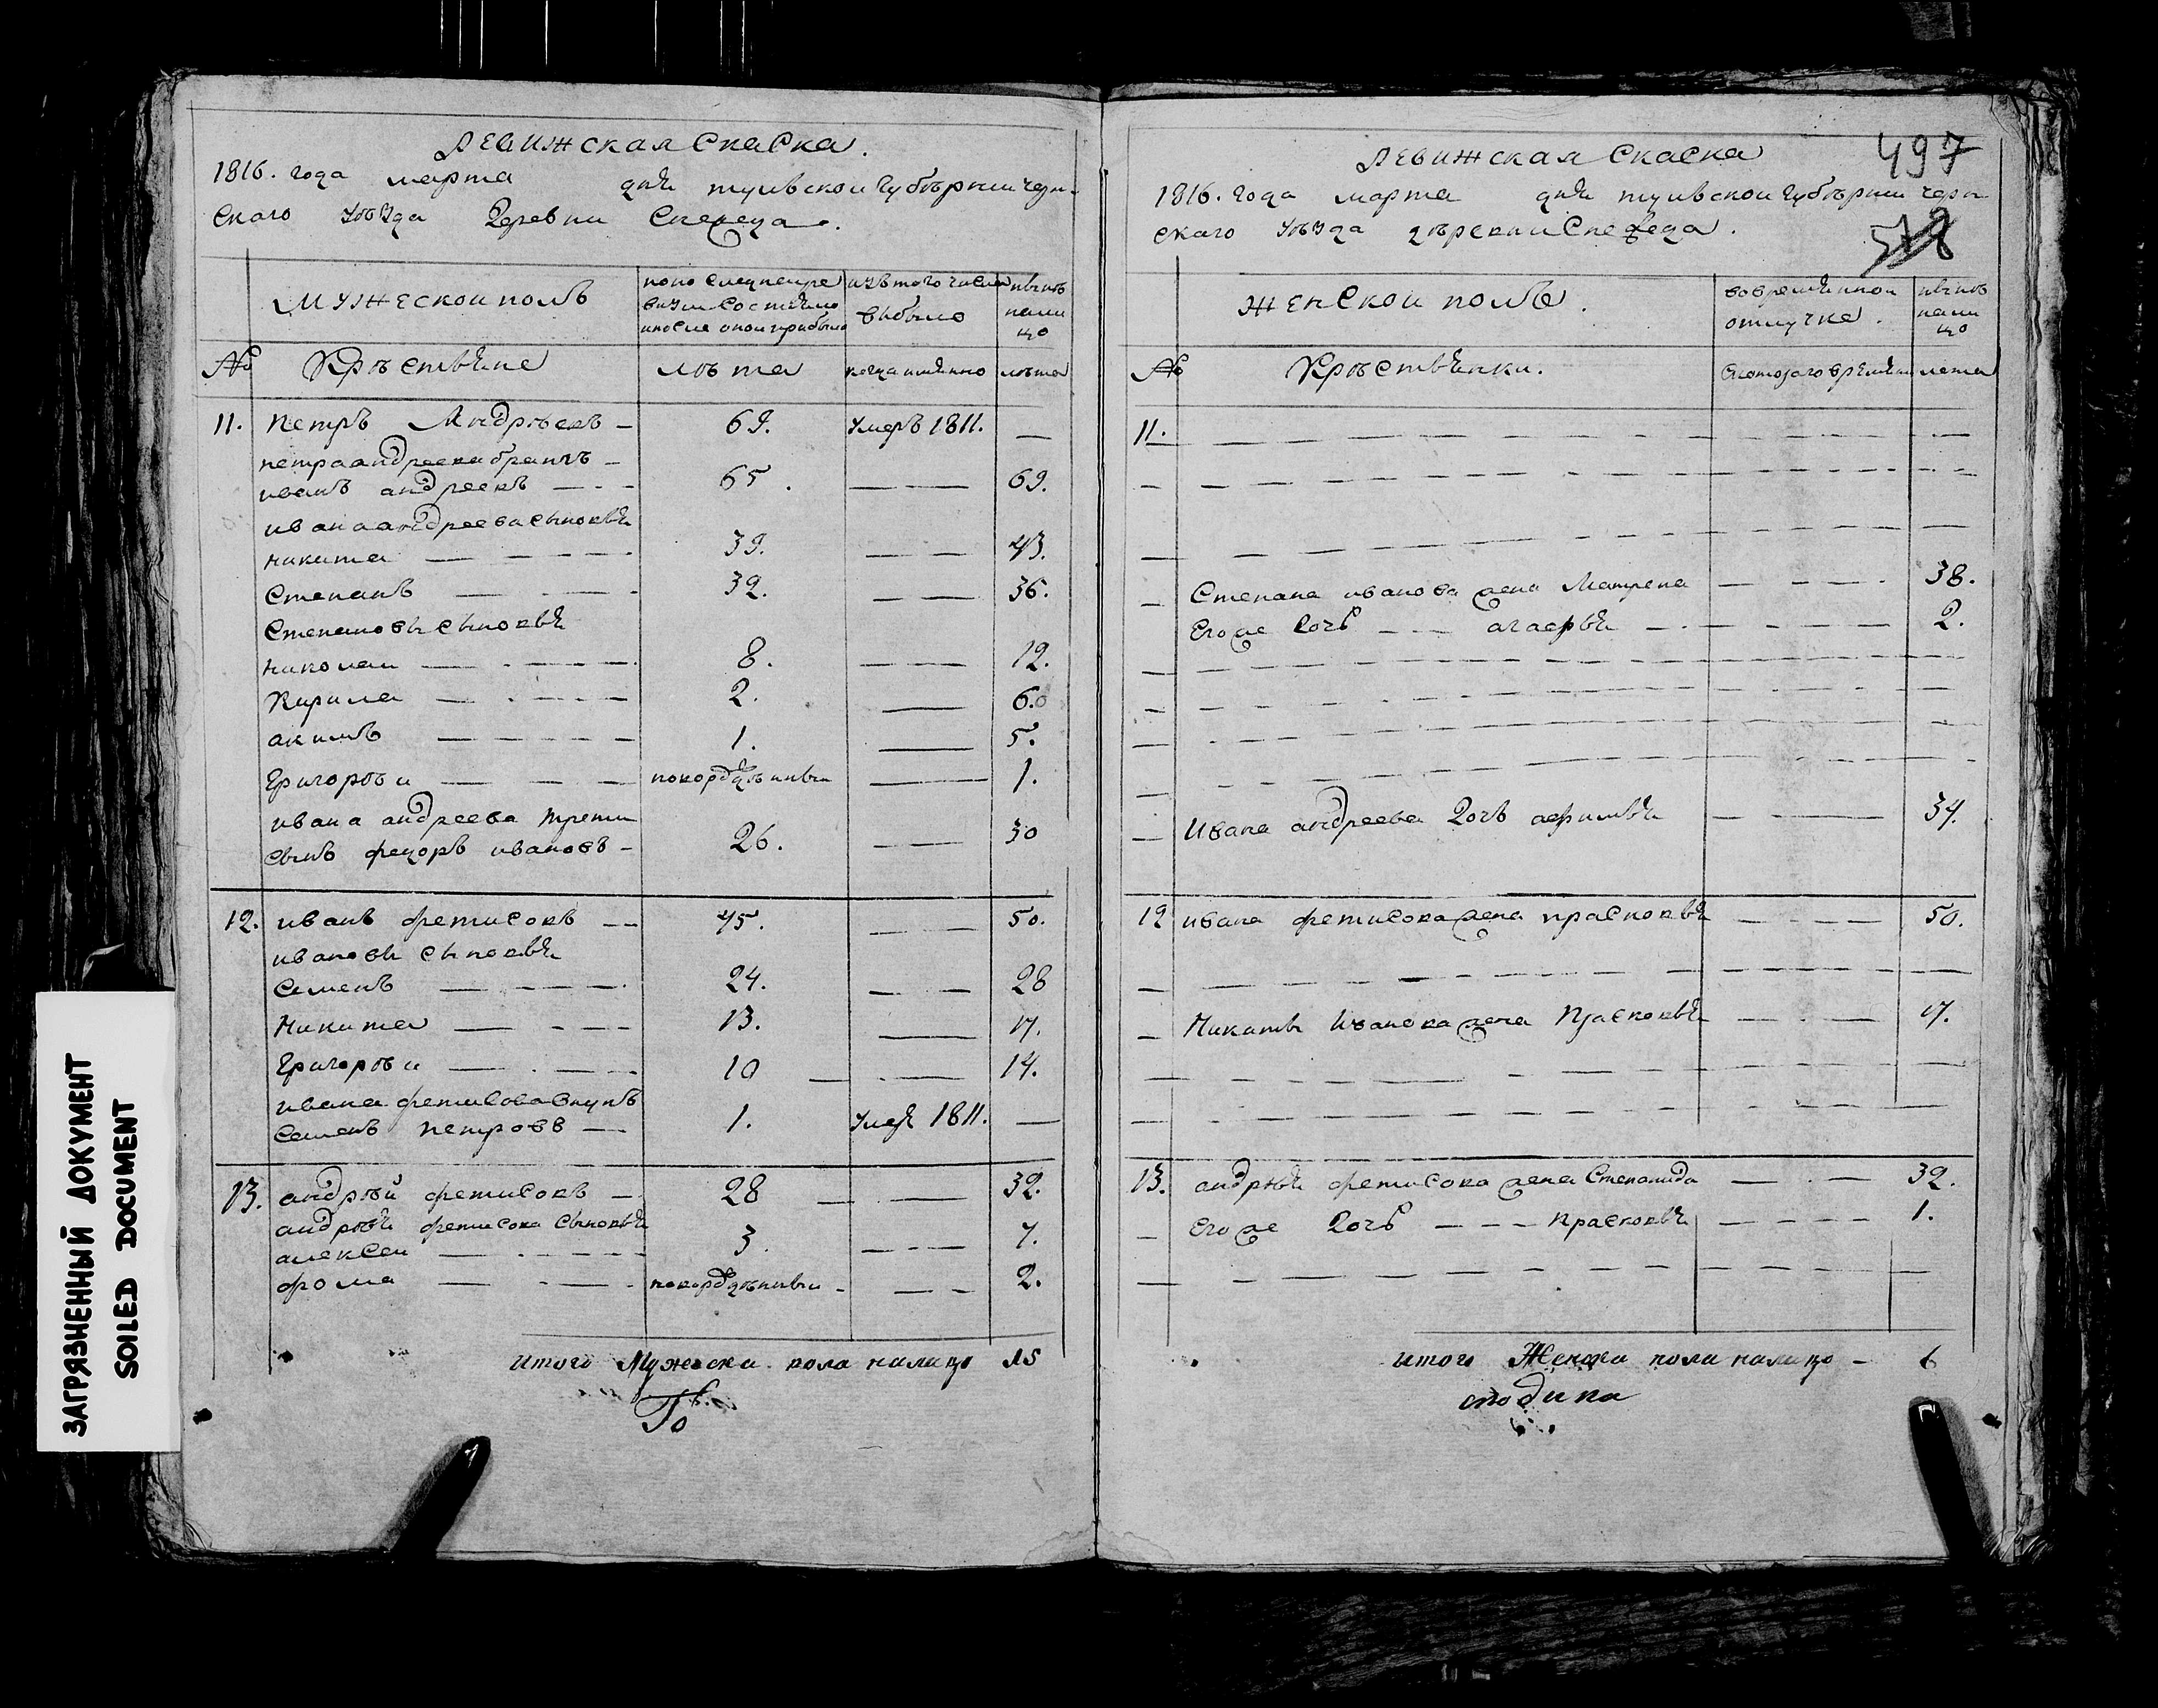 ЗАГРЯЗНЕННЫЙ ДОКУМЕНТ
SOILED DOCUMENT
Ревижская скаска.
1816. года марта дня тулвской губѣрнии черн-
скаго уѣзда деревни
Мужеской полъ
по последнейре
визии состояло
ипосле оной прибыло
изътого числа
выбыло
нынѣ
нали
цо
№ Крѣстьяне лѣта когда имянно лѣта
11. Петръ Андрѣевъ — 69. умеръ 1811. —
петра андреева братъ —
иванъ андреевъ — 65. — 69.
ивана андреева сыновья
никита — 39. — 43.
Степанъ — 32. — 36.
Степановы сыновья
николаи — 8. — 12.
Кирила — 2. — 6.
акимъ — 1. — 5.
Григорѣи — — 1.
ивана андреева трети
сынъ федоръ ивановъ — 26. — 30
12. иванъ фетисовъ — 45. — 50.
ивановы сыновья
Семенъ — 24. — 28
Никита — 13. — 17.
Григорѣи — 10 — 14.
ивана фетисова внукъ
Семенъ петровъ — 1. умеръ 1811. —
13. андрѣй фетисовъ — 28 — 32.
андрѣя фетисова сыновья
алексеи — 3. — 7.
фома — — 2.
итого Мужеска пола налицо 15
Ревижская скаска
497
1816. года марта дня тулвской губѣрнии черн-
скаго уѣзда дѣревни
Женской полъ.
вовремянной
отлучке.
нынѣ
нали
цо
№ Крѣстьянки. скотораго времяни лета
11. —
Степана иванова жена Матрена — 38.
Егоже дочь — агафья — 2.
Ивана андреева дочь афимья — 34.
12 ивана фетисова жена прасковья — 50.
Никиты Иванова жена Прасковья — 17.
13. андрѣя фетисова жена Степанида — 32.
Егоже дочь — прасковья — 1.
итого Женска пола налицо — 6